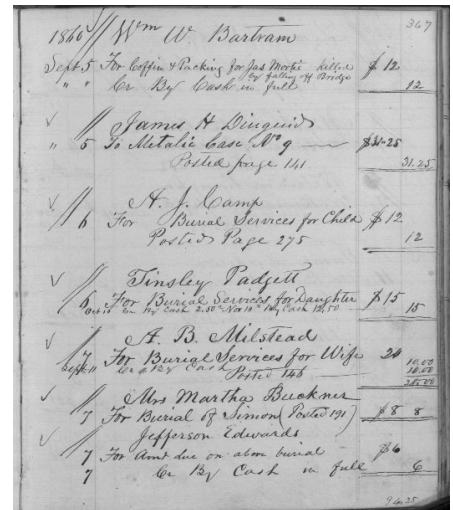 367
1860 Wm W. Bartram
Sept 5 For Coffin & Packing for Jas killed $ 12
by falling off Bridge
" " Cr By Cash in full 12
James H Diuguid
" 5 To Metalic Case No 9 $31-25
Posted page 141 31.25
A. J. Camp
6 For Burial Services for Child $ 12
Posted Page 275 12
Tinsley Padgett
6 For Burial Services for Daughter $ 15
Oct 10 Cr By Cash 2.50 Nov 10th By Cash 12.50 15
A. B. Milstead
7 For Burial Services for Wife 20
Sept 11 Cr By Cash 10.00
Posted 146 10.00
Mrs Martha Buckner
7 For Burial of Simon (Posted 191) $ 8 8
Jefferson Edwards
7 For Amt due on abov burial $6
7 Cr By Cash in full 6